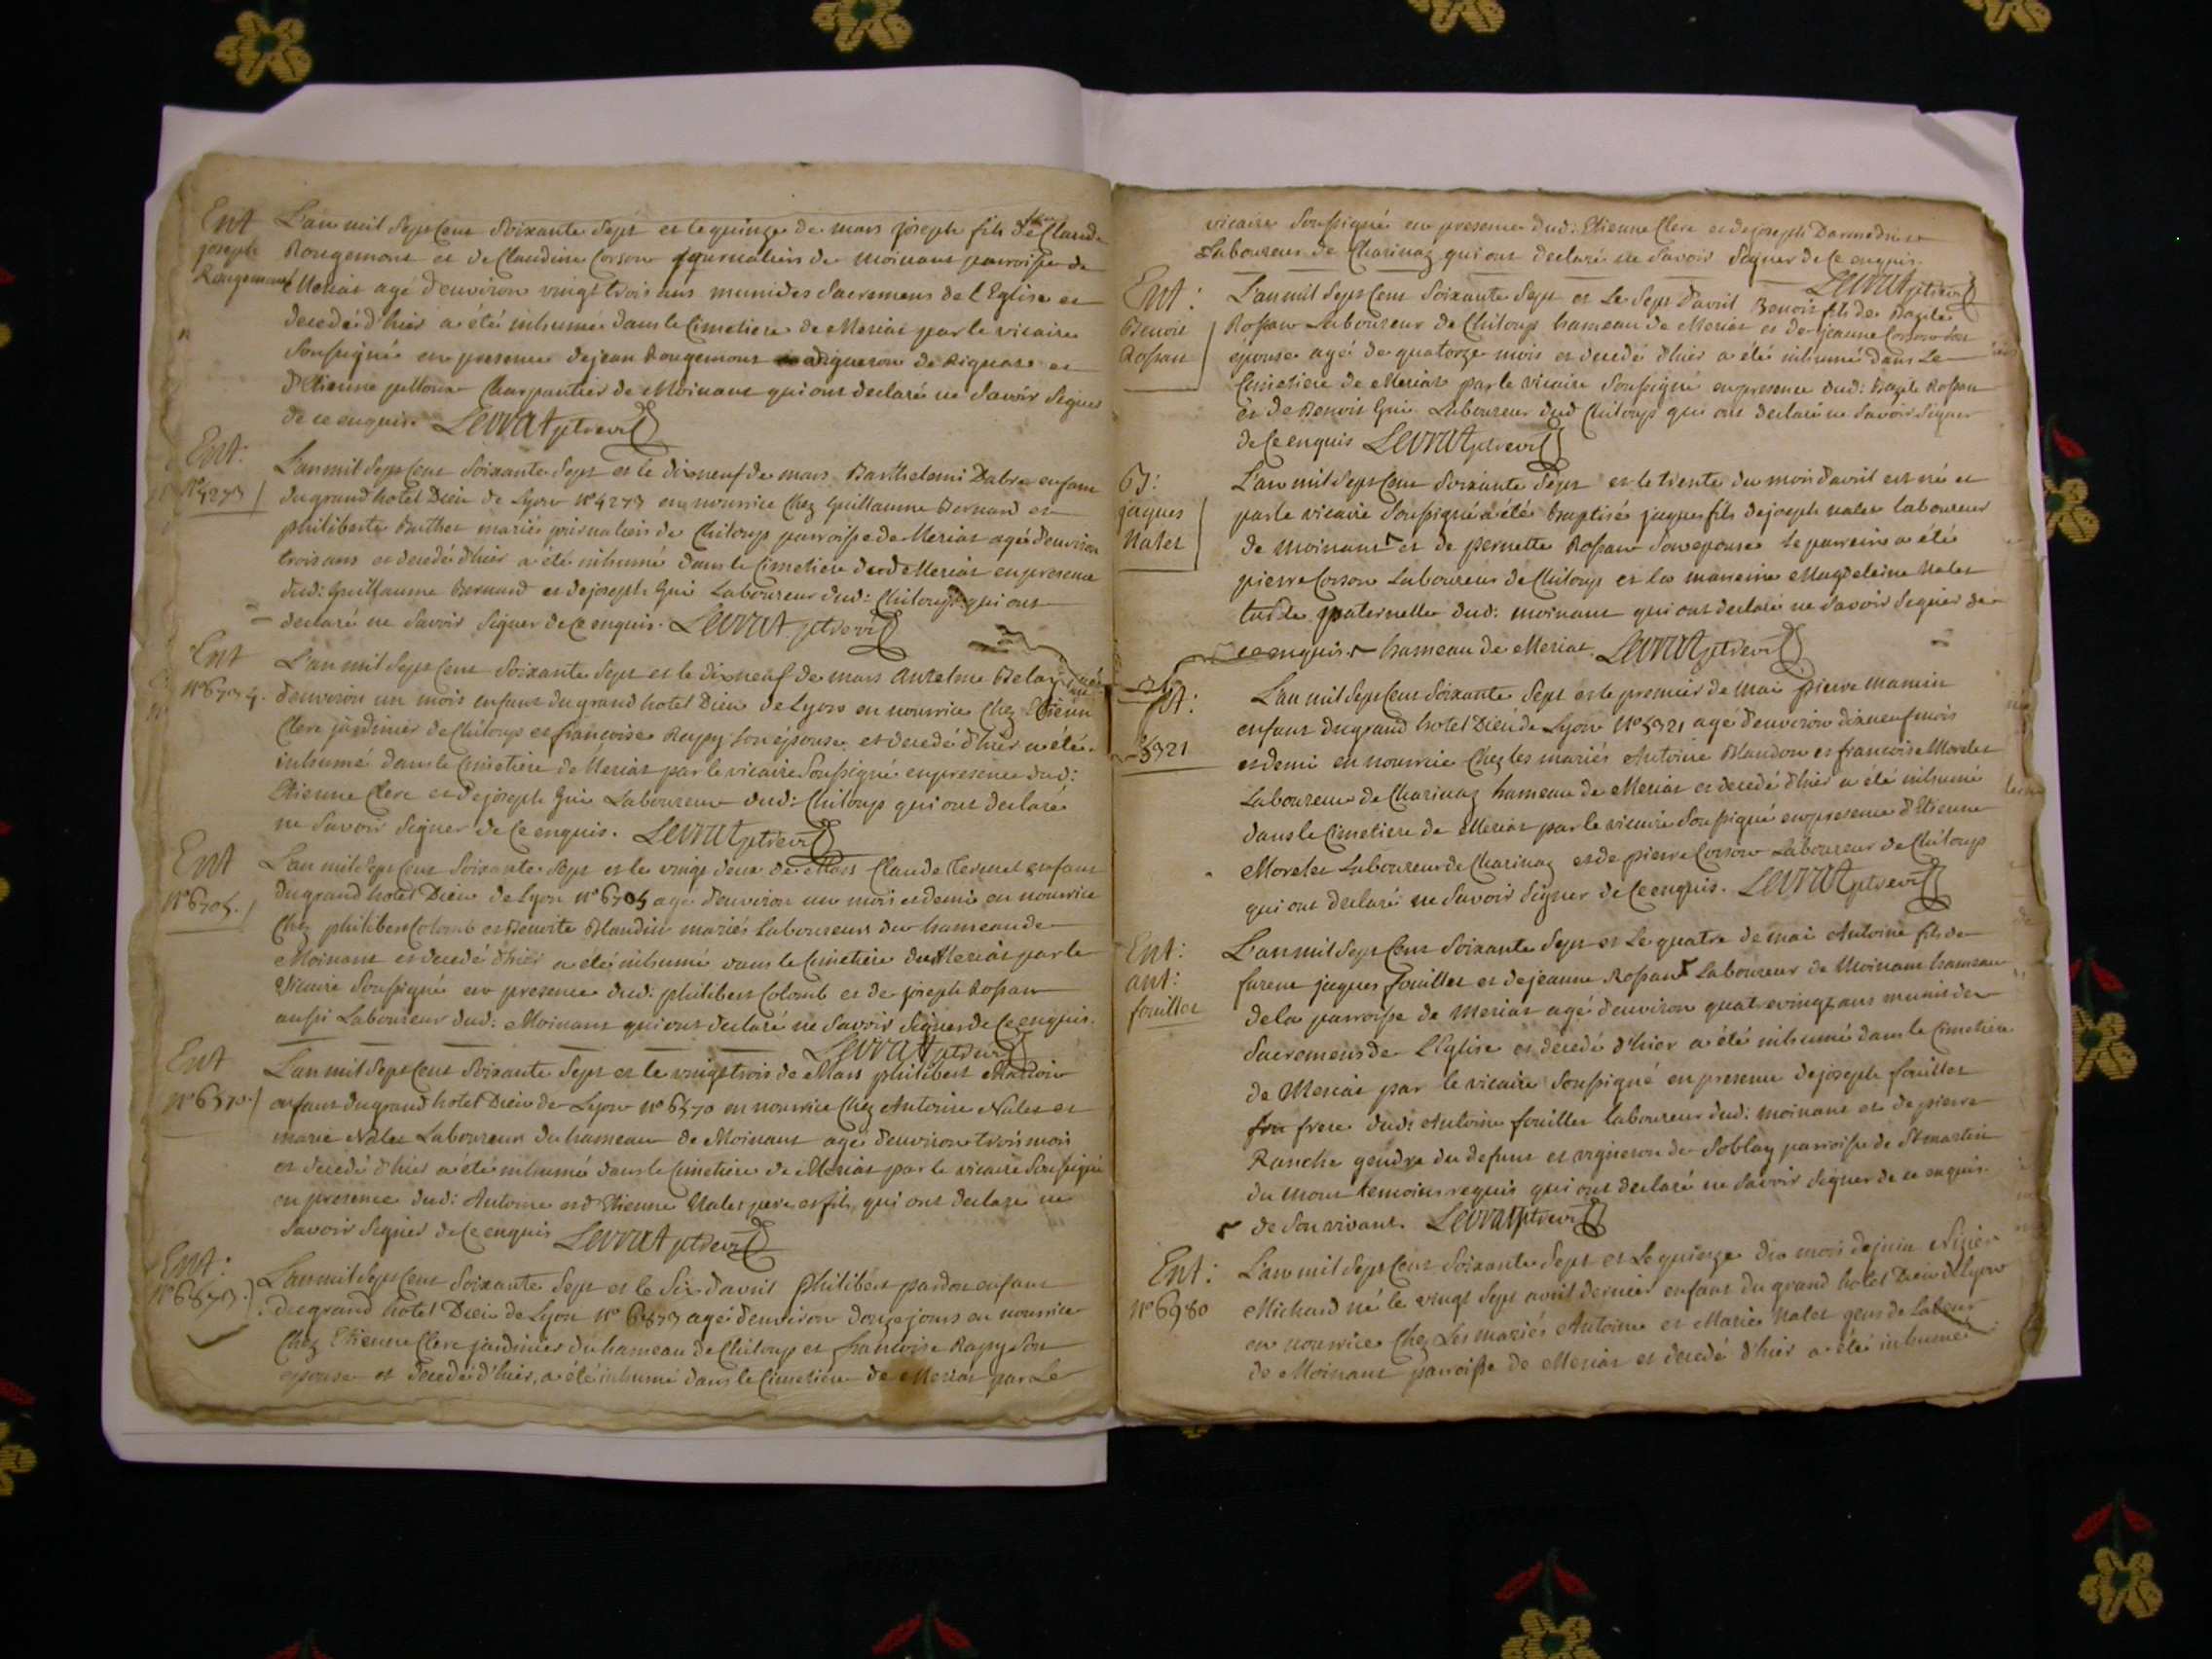 Ent
joseph
Rougemont
L'an mil sept cent soixante sept et le quinze de mars joseph fils de feu Claude
Rougemont et de Claudine Corson journaliers de moinant parroisse de
Meriat agé d'environ vingt trois ans muni des sacremens de l'Eglise et
decedé d'hier a été inhumé dans le cimetiere de Meriat par le vicaire
soussigné en presence de jean Rougemont vigneron de et
d'Etienne Charpantier de Moinant qui ont declaré ne savoir signer
de ce enquis. Levrat ptre vic
Ent:
N° 4273
L'an mil sept cent soixante sept et le dixneuf de mars Barthelemi Dabre enfant
du grand hotel Dieu de Lyon n° 4273 en nourrice chez Guillaume Bernard et
philiberte mariés journaliers de Chiloup parroisse de Meriat agé d'environ
trois ans et decedé d'hier a été inhumé dans le cimetiere dud Meriat en presence
dud: Guillaume Bernard et de joseph Gui Laboureur dud: Chiloup qui ont
declaré ne savoir signer de ce enquis. Levrat ptre vic
Ent
L'an mil sept cent soixante sept et le dixneuf de mars Antelme
d'environ un mois enfant du grand hotel Dieu de Lyon en nourrice chez Etienne
Clerc jardinier de Chiloup et francoise Ruppy son épouse et decedé d'hier a été
inhumé dans le cimetiere de Meriat par le vicaire soussigné en presence dud:
Etienne Clerc et de joseph Gui Laboureur dud: Chiloup qui ont declaré
ne savoir signer de ce enquis. Levrat ptre vic
Ent
N° 6705.
L'an mil sept cent soixante sept et le vingt deux de Mars Claude enfant
du grand hotel Dieu de Lyon n° 6705 agé d'environ un mois et demi en nourrice
chez philibert Colomb et Benoite Blandin mariés Laboureurs du hameau de
Moinant et decedé d'hier a été inhumé dans le cimetiere de Meriat par le
Vicaire soussigné en presence dud: philibert Colomb et de joseph Rossan
aussi Laboureur dud: Moinant qui ont declaré ne savoir signer de ce enquis.
Levrat ptre vic
Ent
n° 6570.
L'an mil sept cent soixante sept et le vingt trois de Mars philibert
enfant du grand hotel Dieu de Lyon n° 6570 en nourrice chez Antoine Nalet et
marie Nalet Laboureurs du hameau de Moinant agé d'environ trois mois
et decedé d'hier a été inhumé dans le cimetiere de Meriat par le vicaire soussigné
en presence dud: Antoine et d'Etienne Nalet pere et fils, qui ont declaré ne
savoir signer de ce enquis Levrat ptre vic
Ent:
L'an mil sept cent soixante sept et le six d'avril philibert pardon enfant
du grand hotel Dieu de Lyon n° agé d'environ douze jours en nourrice
chez Etienne Clerc jardinier du hameau de Chiloup et francoise Ruppy son
epouse et decedé d'hier, a été inhumé dans le cimetiere de Meriat par Le
vicaire soussigné en presence dud: Etienne Clerc et de joseph
Laboureur de Charinaz qui ont declaré ne savoir signer de ce enquis.
Levrat ptre vic
Ent:
Benoit
Rossan
L'an mil sept cent soixante sept et Le sept d'avril Benoit fils de Bazile
Rossan Laboureur de Chiloup hameau de Meriat et de jeanne Corson son
épouse agé de quatorze mois et decedé d'hier a été inhumé dans Le
cimetiere de Meriat par le vicaire soussigné en presence dud: Bazile Rossan
et de Benoit Gui Laboureur dud Chiloup qui ont declaré ne savoir signer
de ce enquis Levrat ptre vic
B:
jaques
Nalet
L'an mil sept cent soixante sept et le trente du mois d'avril est né et
par le vicaire soussigné a été baptisé jaques fils de joseph nalet laboureur
de moinant et de pernette Rossan son epouse le parrein a été
pierre Corson Laboureur de Chiloup et la marreine Magdeleine Nalet
tante paternelle dud: moinant qui ont declaré ne savoir signer de
ce enquis. hameau de Meriat. Levrat ptre vic
Ent:
5321
L'an mil sept cent soixante sept et le premier de mai pierre mamin
enfant du grand hotel Dieu de Lyon N° 5321 agé d'environ dixneuf mois
et demi en nourrice chez les mariés Antoine Blandon et francoise Morelet
Laboureur de Charinaz hameau de Meriat et decedé d'hier a été inhumé
dans le cimetiere de Meriat par le vicaire soussigné en presence d'Etienne
Morelet Laboureur de Charinaz et de pierre Corson Laboureur de Chiloup
qui ont declaré ne savoir signer de ce enquis. Levrat ptre vic
Ent:
ant:
fouillet
L'an mil sept cent soixante sept et Le quatre de mai Antoine fils de
furent jaques fouillet et de jeanne Rossan Laboureur de Moinant hameau
de la parroisse de Meriat agé d'environ quatrevingt ans muni des
sacremens de L'Eglise et decedé d'hier a été inhumé dans le cimetiere
de Meriat par le vicaire soussigné en presence de joseph fouillet
frere dud: Antoine fouillet laboureur dud: moinant et de pierre
Ranche gendre du defunt et vigneron de Soblay parroisse de St martin
du mont temoins requis qui ont declaré ne savoir signer de ce enquis.
de son vivant. Levrat ptre vic
Ent:
N° 6980
L'an mil sept cent soixante sept et Le quinze du mois de juin Nizier
Michard né le vingt sept avril dernier enfant du grand hotel Dieu de Lyon
en nourrice chez Les mariés Antoine et Marie Nalet gens de Labeur
de Moinant parroisse de Meriat et decedé d'hier a été inhumé